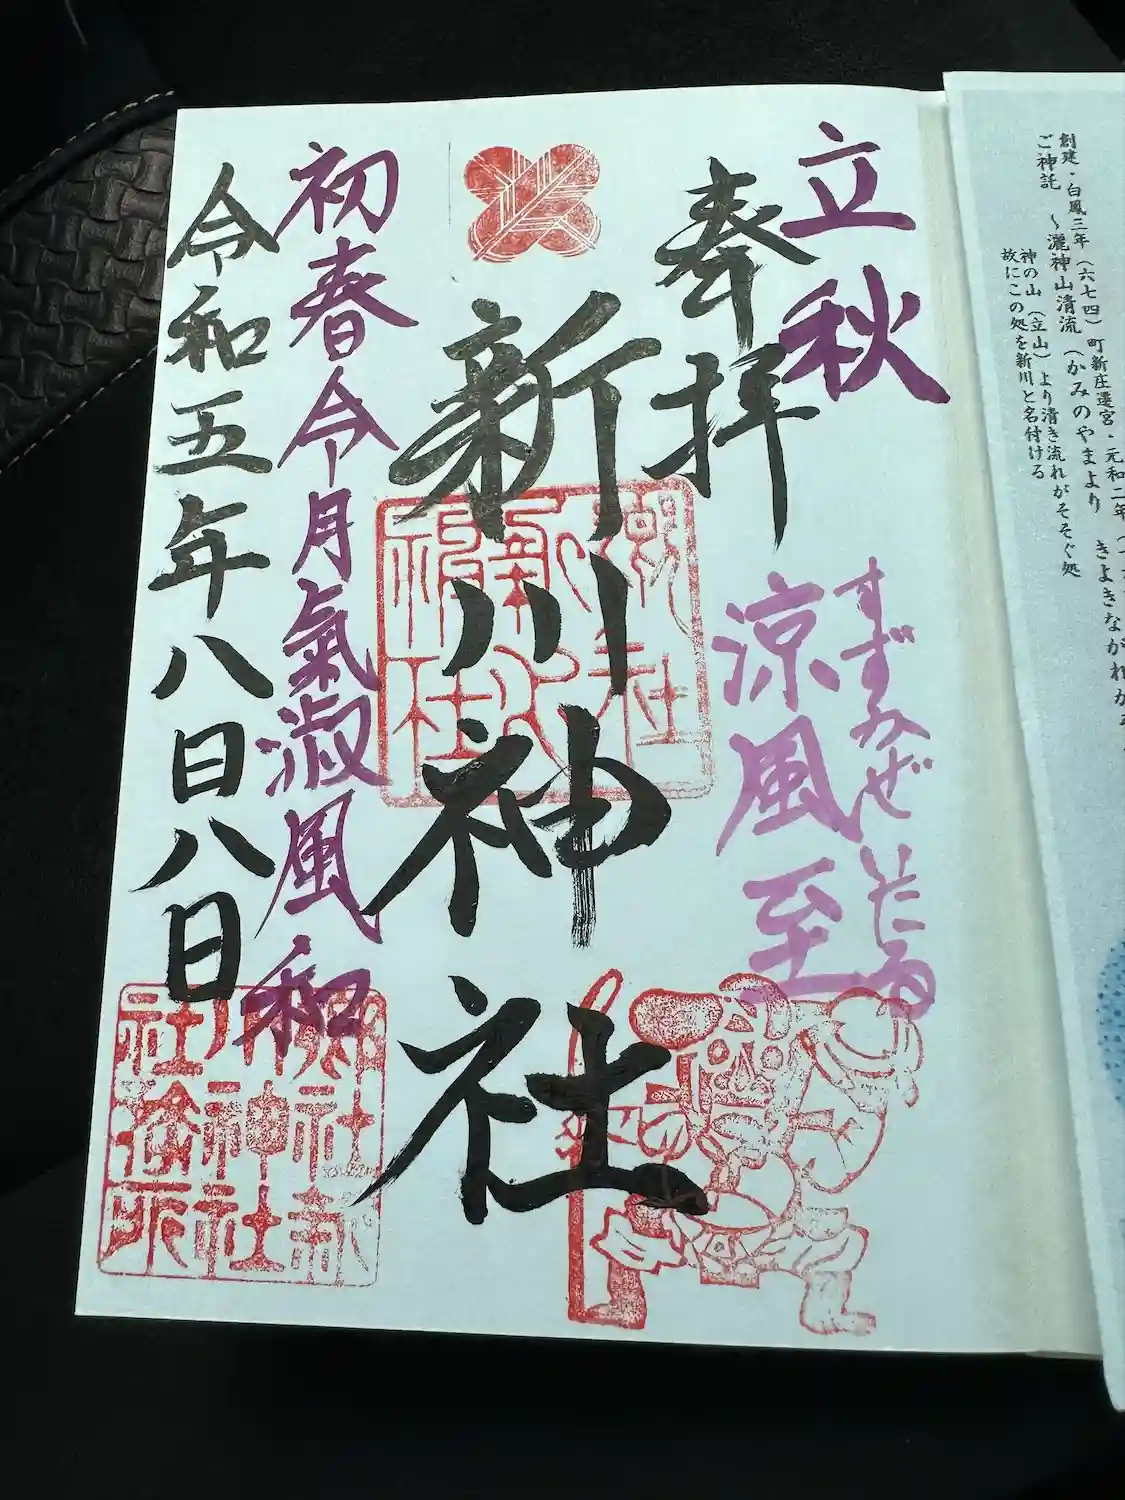 創建・白鳳三年(六七四)町新庄遷宮・元和二年
ご神託 〜灑神山清流(かみのやまより きよきながれが
神の山(立山)より清き流れがそそぐ処
故にこの処を新川と名付ける
立秋
すずかぜ いたる
涼風至
奉拝
新川神社
初春令月氣淑風和
令和五年八月八日
郷社新
川神社
社務所